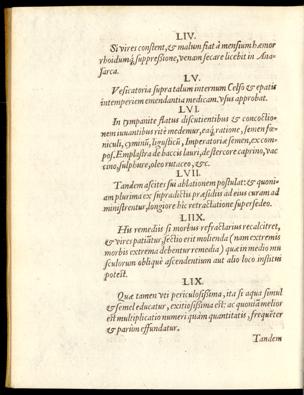 LIV.
Si vires constent, & malum fiat à mensium hæmor
rhoidumq́; suppressione, venam secare licebit in Ana-
sarca.
LV.
Vesicatoria supra talum internum Celso & epatis
intemperiem emendantia medicam. vsus approbat.
LVI.
In tympanite flatus discutientibus & concoctio-
nem iuuantibus ritè medemur, eaq́; ratione, semen fæ-
niculi, cymini, ligustici, Imperatoriæ semen, ex com-
pos. Emplastra de baccis lauri, de stercore caprino, vac
cino, sulphure, oleo rutaceo, &c.
LVII.
Tandem ascites sui ablationem postulat: & quoni-
am plurima ex supradictis præsidiis ad eius curam ad
ministrentur, longiore hîc retractatione supersedeo.
LIIX.
His remediis si morbus refractarius recalcitret,
& vires patiũtur, sectio erit molienda (nam extremis
morbis extrema debentur remedia) quæ in medio mu
sculorum obliquè ascendentium aut alio loco institui
potest.
LIX.
Quæ tamen vti periculosissima, ita si aqua simul
& semel educatur, exitiosissima est: ac quoniã melior
est multiplicatio numeri quàm quantitatis, frequẽter
& parùm effundatur.
Tandem